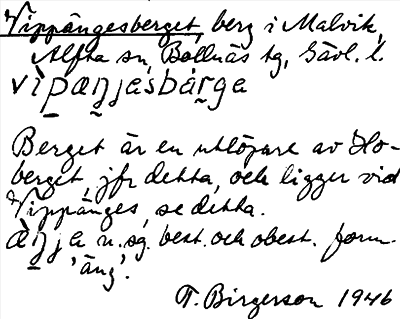 Vippängesberget, berg i Malvik,
Alfta sn, Bollnäs tg, Gävl. l.
vìpæŋjəsbàrgə
Berget är en utlöpare av Ho-
berget, jfr detta, och ligger vid
Vippänges, se detta.
æŋjə n. sg. best. och obest. form
'äng'.
T. Birgerson 1946